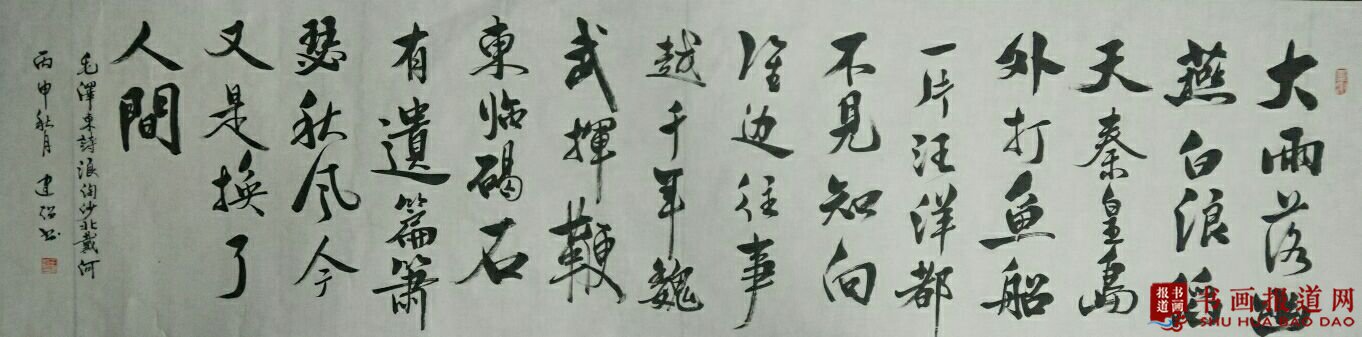 大雨落幽
燕白浪滔
天秦皇島
外打鱼船
一片汪洋都
不見知向
谁边往事
越千年魏
武揮鞭
東临碣石
有遺篇簫
瑟秋风今
又是换了
人間
毛澤东詩浪淘沙北戴河
丙申秋月 建 书
书画报道
书画报道网
SHU HUA BAO DAO